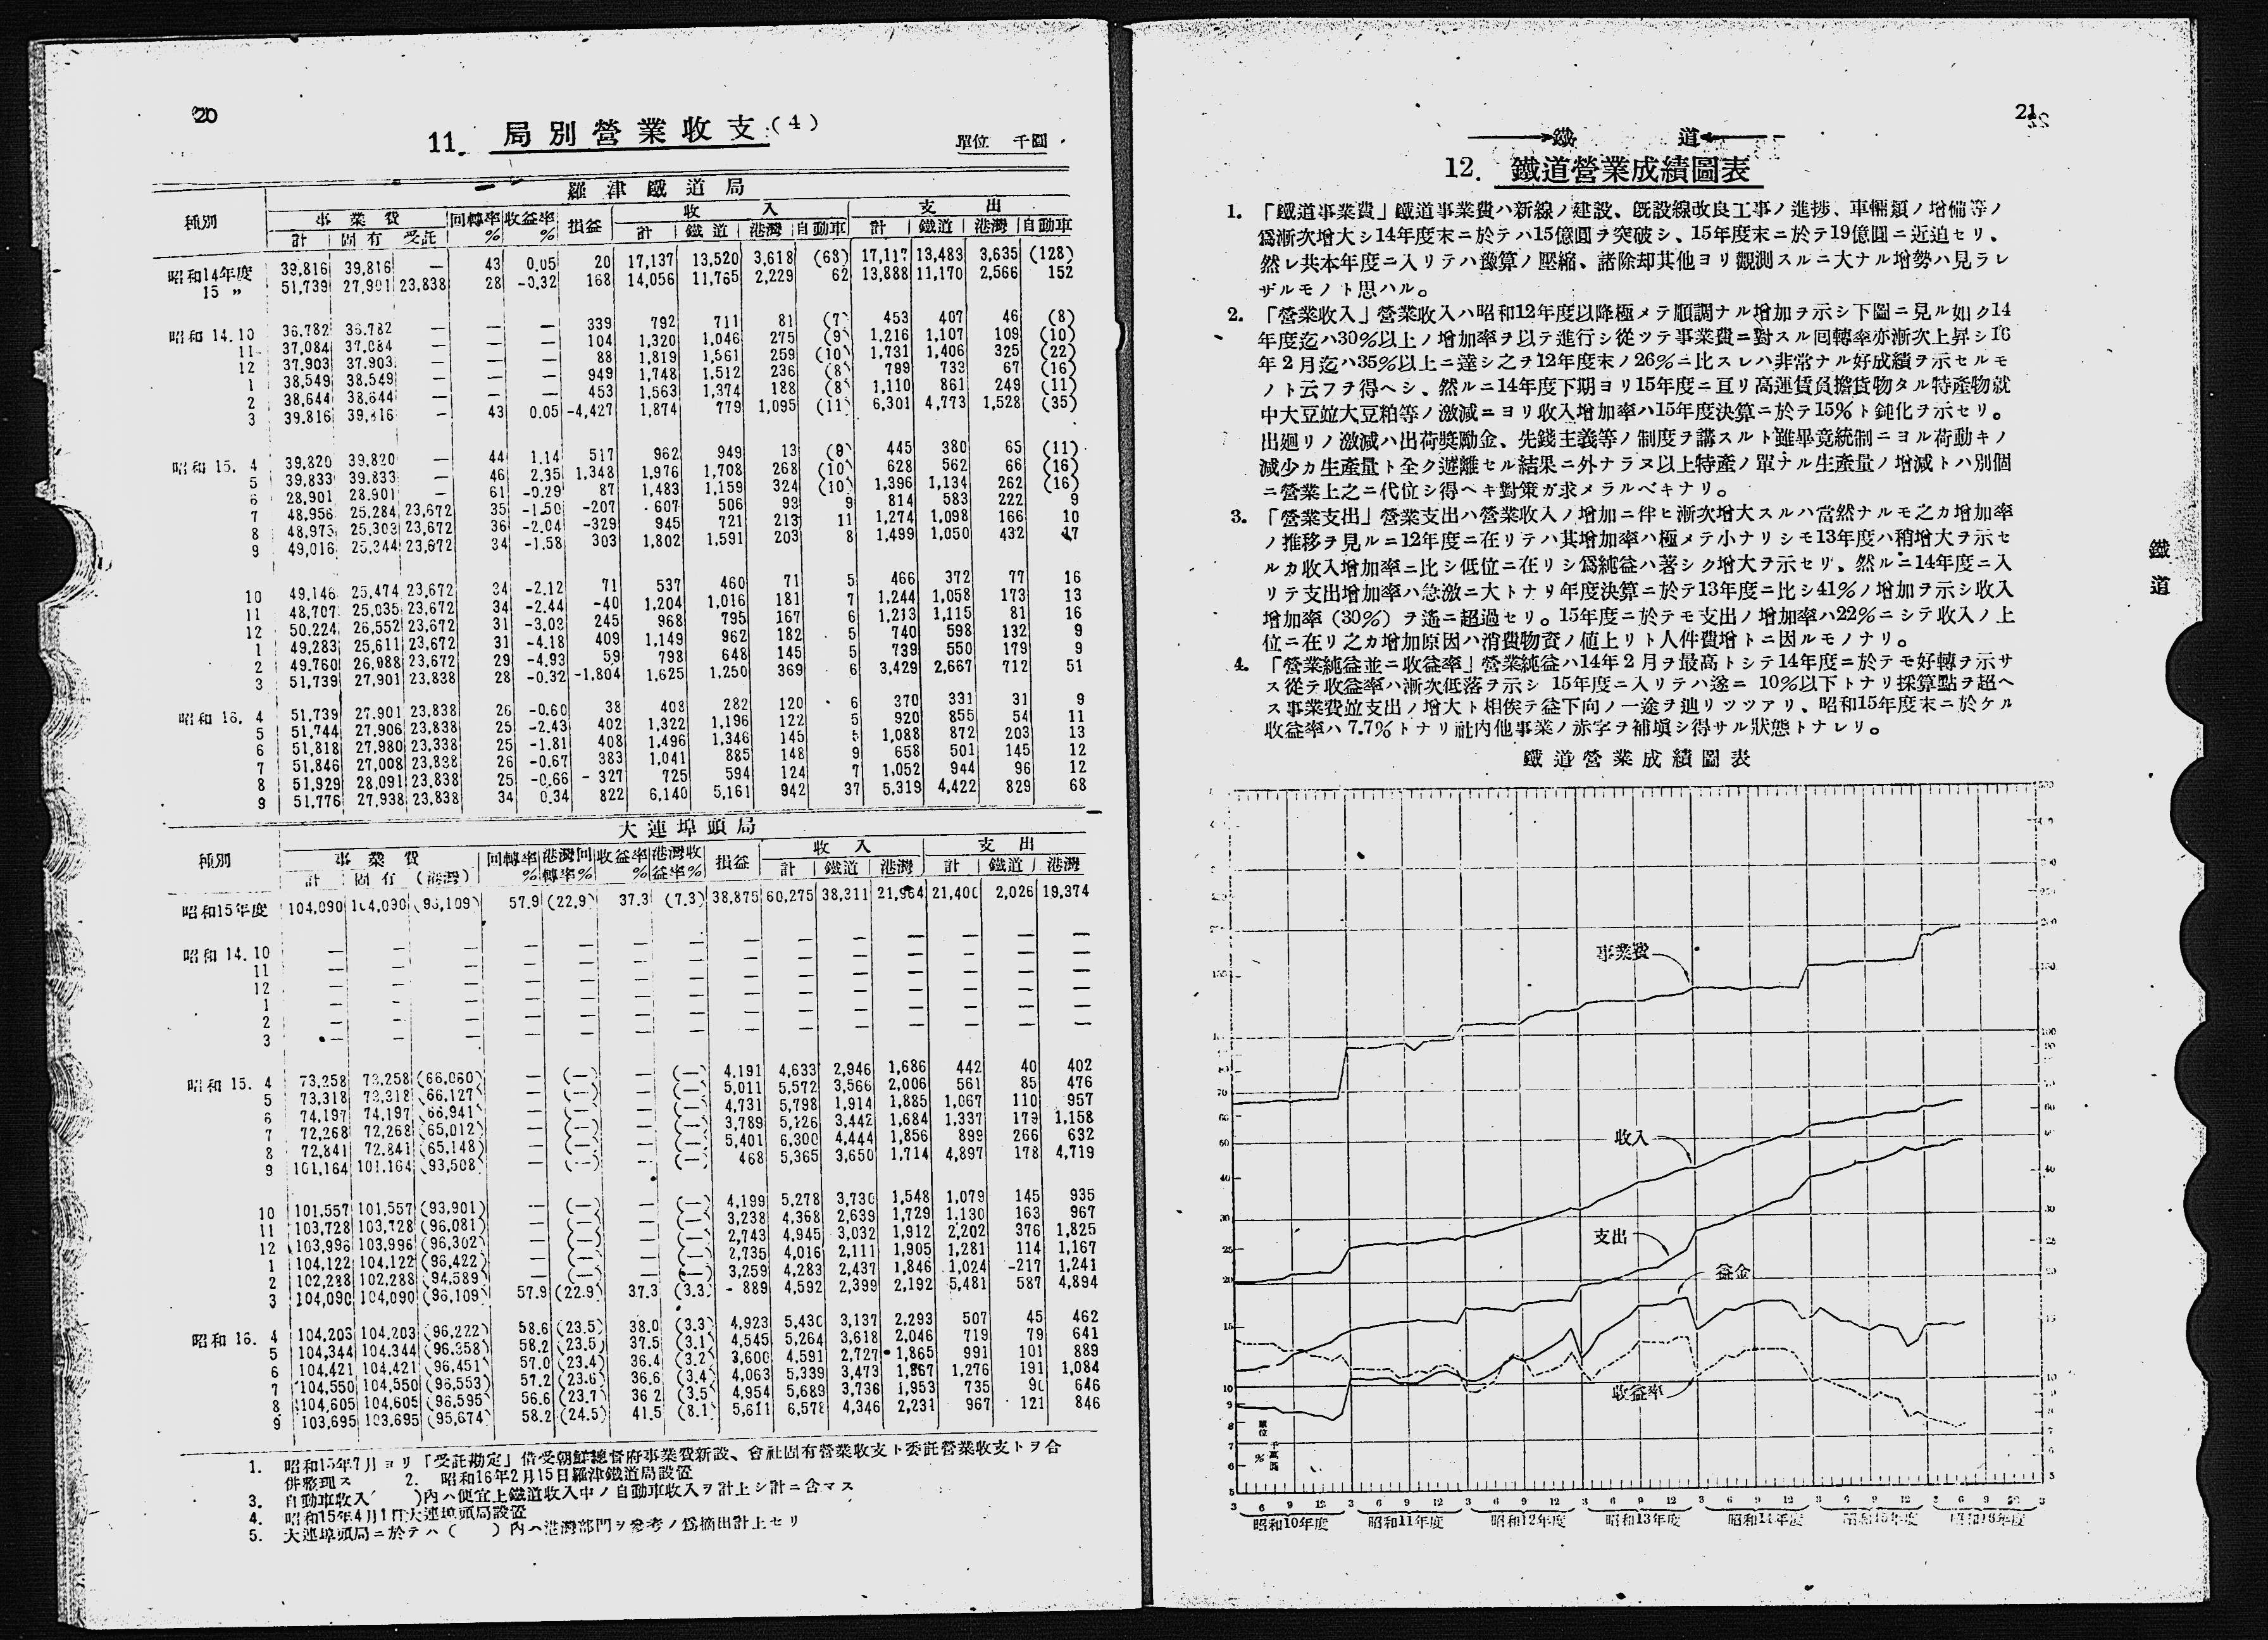 20
11. 局別營業收支 (4)
單位 千圓
羅津鐵道局
種別 事業費 回轉率% 收益率% 損益 收入 支出
計 固有 受託 計 鐵道 港灣 自動車 計 鐵道 港灣 自動車
昭和14年度 39,816 39,816 — 43 0.05 20 17,137 13,520 3,618 (68) 17,117 13,483 3,635 (128)
15 〃 51,739 27,901 23,838 28 -0.32 168 14,056 11,765 2,229 62 13,888 11,170 2,566 152
昭和14.10 36,782 36,782 — — — 339 792 711 81 (7) 453 407 46 (8)
11 37,084 37,084 — — — 104 1,320 1,046 275 (9) 1,216 1,107 109 (10)
12 37,903 37,903 — — — 88 1,819 1,561 259 (10) 1,731 1,406 325 (22)
1 38,549 38,549 — — — 949 1,748 1,512 236 (8) 799 733 67 (16)
2 38,644 38,644 — — — 453 1,563 1,374 188 (8) 1,110 861 249 (11)
3 39,816 39,816 — 43 0.05 -4,427 1,874 779 1,095 (11) 6,301 4,773 1,528 (35)
昭和15. 4 39,820 39,820 — 44 1.14 517 962 949 13 (9) 445 380 65 (11)
5 39,833 39,833 — 46 2.35 1,348 1,976 1,708 268 (10) 628 562 66 (16)
6 28,901 28,901 — 61 -0.29 87 1,483 1,159 324 (10) 1,396 1,134 262 (16)
7 48,956 25,284 23,672 35 -1.50 -207 607 506 93 9 814 583 222 9
8 48,975 25,303 23,672 36 -2.04 -329 945 721 213 11 1,274 1,098 166 10
9 49,016 25,344 23,672 34 -1.58 303 1,802 1,591 203 8 1,499 1,050 432 17
10 49,146 25,474 23,672 34 -2.12 71 537 460 71 5 466 372 77 16
11 48,707 25,035 23,672 34 -2.44 -40 1,204 1,016 181 7 1,244 1,058 173 13
12 50,224 26,552 23,672 31 -3.02 245 968 795 167 6 1,213 1,115 81 16
1 49,283 25,611 23,672 31 -4.18 409 1,149 962 182 5 740 598 132 9
2 49,760 26,088 23,672 29 -4.93 59 798 648 145 5 739 550 179 9
3 51,739 27,901 23,838 28 -0.32 -1,804 1,625 1,250 369 6 3,429 2,667 712 51
昭和16. 4 51,739 27,901 23,838 26 -0.60 38 408 282 120 6 370 331 31 9
5 51,744 27,906 23,838 25 -2.43 402 1,322 1,196 122 5 920 855 54 11
6 51,818 27,980 23,338 25 -1.81 408 1,496 1,346 145 5 1,088 872 203 13
7 51,846 27,008 23,838 26 -0.67 383 1,041 885 148 9 658 501 145 12
8 51,929 28,091 23,838 25 -0.66 -327 725 594 124 7 1,052 944 96 12
9 51,776 27,938 23,838 34 0.34 822 6,140 5,161 942 37 5,319 4,422 829 68
大連埠頭局
種別 事業費 回轉率% 港灣回轉率% 收益率% 港灣收益率% 損益 收入 支出
計 固有 (港灣) 計 鐵道 港灣 計 鐵道 港灣
昭和15年度 104,090 104,090 (96,109) 57.9 (22.9) 37.3 (7.3) 38,875 60,275 38,311 21,964 21,400 2,026 19,374
昭和14.10 — — — — — — — — — — — — — —
11 — — — — — — — — — — — — — —
12 — — — — — — — — — — — — — —
1 — — — — — — — — — — — — — —
2 — — — — — — — — — — — — — —
3 — — — — — — — — — — — — — —
昭和15. 4 73,258 73,258 (66,060) — (—) — (—) 4,191 4,633 2,946 1,686 442 40 402
5 73,318 73,318 (66,127) — (—) — (—) 5,011 5,572 3,566 2,006 561 85 476
6 74,197 74,197 (66,941) — (—) — (—) 4,731 5,798 1,914 1,885 1,067 110 957
7 72,268 72,268 (65,012) — (—) — (—) 3,789 5,126 3,442 1,684 1,337 179 1,158
8 72,841 72,841 (65,148) — (—) — (—) 5,401 6,300 4,444 1,856 899 266 632
9 101,164 101,164 (93,508) — (—) — (—) 468 5,365 3,650 1,714 4,897 178 4,719
10 101,557 101,557 (93,901) — (—) — (—) 4,199 5,278 3,730 1,548 1,079 145 935
11 103,728 103,728 (96,081) — (—) — (—) 3,238 4,368 2,639 1,729 1,130 163 967
12 103,996 103,996 (96,302) — (—) — (—) 2,743 4,945 3,032 1,912 2,202 376 1,825
1 104,122 104,122 (96,422) — (—) — (—) 2,735 4,016 2,111 1,905 1,281 114 1,167
2 102,288 102,288 (94,589) — (—) — (—) 3,259 4,283 2,437 1,846 1,024 -217 1,241
3 104,090 104,090 (96,109) 57.9 (22.9) 37.3 (3.3) -889 4,592 2,399 2,192 5,481 587 4,894
昭和16. 4 104,203 104,203 (96,222) 58.6 (23.5) 38.0 (3.3) 4,923 5,430 3,137 2,293 507 45 462
5 104,344 104,344 (96,358) 58.2 (23.5) 37.5 (3.1) 4,545 5,264 3,618 2,046 719 79 641
6 104,421 104,421 (96,451) 57.0 (23.4) 36.4 (3.2) 3,600 4,591 2,727 1,865 991 101 889
7 104,550 104,550 (96,553) 57.2 (23.6) 36.6 (3.4) 4,063 5,339 3,473 1,867 1,276 191 1,084
8 104,605 104,605 (96,595) 56.6 (23.7) 36.2 (3.5) 4,954 5,689 3,736 1,953 735 90 646
9 103,695 103,695 (95,674) 58.2 (24.5) 41.5 (8.1) 5,611 6,578 4,346 2,231 967 121 846
1. 昭和15年7月ヨリ「受託勘定」借受朝鮮總督府事業費新設、會社固有營業收支ト委託營業收支トヲ合
併整理ス 2. 昭和16年2月15日羅津鐵道局設置
3. 自動車收入( )內ハ便宜上鐵道收入中ノ自動車收入ヲ計上シ計ニ含マス
4. 昭和15年4月1日大連埠頭局設置
5. 大連埠頭局ニ於テハ( )內ハ港灣部門ヲ參考ノ爲摘出計上セリ
21
鐵 道
12. 鐵道營業成績圖表
1. 「鐵道事業費」鐵道事業費ハ新線ノ建設、旣設線改良工事ノ進捗、車輛類ノ增備等ノ
爲漸次增大シ14年度末ニ於テハ15億圓ヲ突破シ、15年度末ニ於テ19億圓ニ近迫セリ、
然レ共本年度ニ入リテハ豫算ノ壓縮、諸除却其他ヨリ觀測スルニ大ナル增勢ハ見ラレ
ザルモノト思ハル。
2. 「營業收入」營業收入ハ昭和12年度以降極メテ順調ナル增加ヲ示シ下圖ニ見ル如ク14
年度迄ハ30%以上ノ增加率ヲ以テ進行シ從ツテ事業費ニ對スル回轉率亦漸次上昇シ16
年2月迄ハ35%以上ニ達シ之ヲ12年度末ノ26%ニ比スレハ非常ナル好成績ヲ示セルモ
ノト云フヲ得ヘシ、然ルニ14年度下期ヨリ15年度ニ亘リ高運賃負擔貨物タル特產物就
中大豆竝大豆粕等ノ激減ニヨリ收入增加率ハ15年度決算ニ於テ15%ト鈍化ヲ示セリ。
出廻リノ激減ハ出荷獎勵金、先錢主義等ノ制度ヲ講スルト雖畢竟統制ニヨル荷動キノ
減少カ生產量ト全ク遊離セル結果ニ外ナラヌ以上特產ノ單ナル生產量ノ增減トハ別個
ニ營業上之ニ代位シ得ヘキ對策ガ求メラルベキナリ。
3. 「營業支出」營業支出ハ營業收入ノ增加ニ伴ヒ漸次增大スルハ當然ナルモ之カ增加率
ノ推移ヲ見ルニ12年度ニ在リテハ其增加率ハ極メテ小ナリシモ13年度ハ稍增大ヲ示セ
ルカ收入增加率ニ比シ低位ニ在リシ爲純益ハ著シク增大ヲ示セリ、然ルニ14年度ニ入
リテ支出增加率ハ急激ニ大トナリ年度決算ニ於テ13年度ニ比シ41%ノ增加ヲ示シ收入
增加率(30%)ヲ遙ニ超過セリ。15年度ニ於テモ支出ノ增加率ハ22%ニシテ收入ノ上
位ニ在リ之カ增加原因ハ消費物資ノ値上リト人件費增トニ因ルモノナリ。
4. 「營業純益並ニ收益率」營業純益ハ14年2月ヲ最高トシテ14年度ニ於テモ好轉ヲ示サ
ス從テ收益率ハ漸次低落ヲ示シ 15年度ニ入リテハ遂ニ 10%以下トナリ採算點ヲ超ヘ
ス事業費竝支出ノ增大ト相俟テ益下向ノ一途ヲ辿リツツアリ、昭和15年度末ニ於ケル
收益率ハ7.7%トナリ社內他事業ノ赤字ヲ補塡シ得サル狀態トナレリ。
鐵道
鐵道營業成績圖表
事業費
收入
支出
益金
收益率
70
60
50
40
30
25
20
15
10
9
8
7
6
5
單位 千萬圓 %
3 6 9 12 3 6 9 12 3 6 9 12 3 6 9 12 3 6 9 12 3 6 9 12 3 6 9 3
昭和10年度 昭和11年度 昭和12年度 昭和13年度 昭和14年度 昭和15年度 昭和16年度